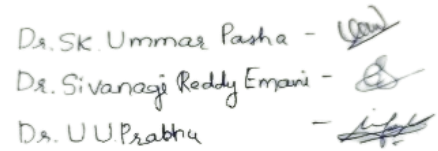 Dr. SK. Ummar Pasha -
Dr. Sivanagi Reddy Emani -
Dr. U U Prabhu -